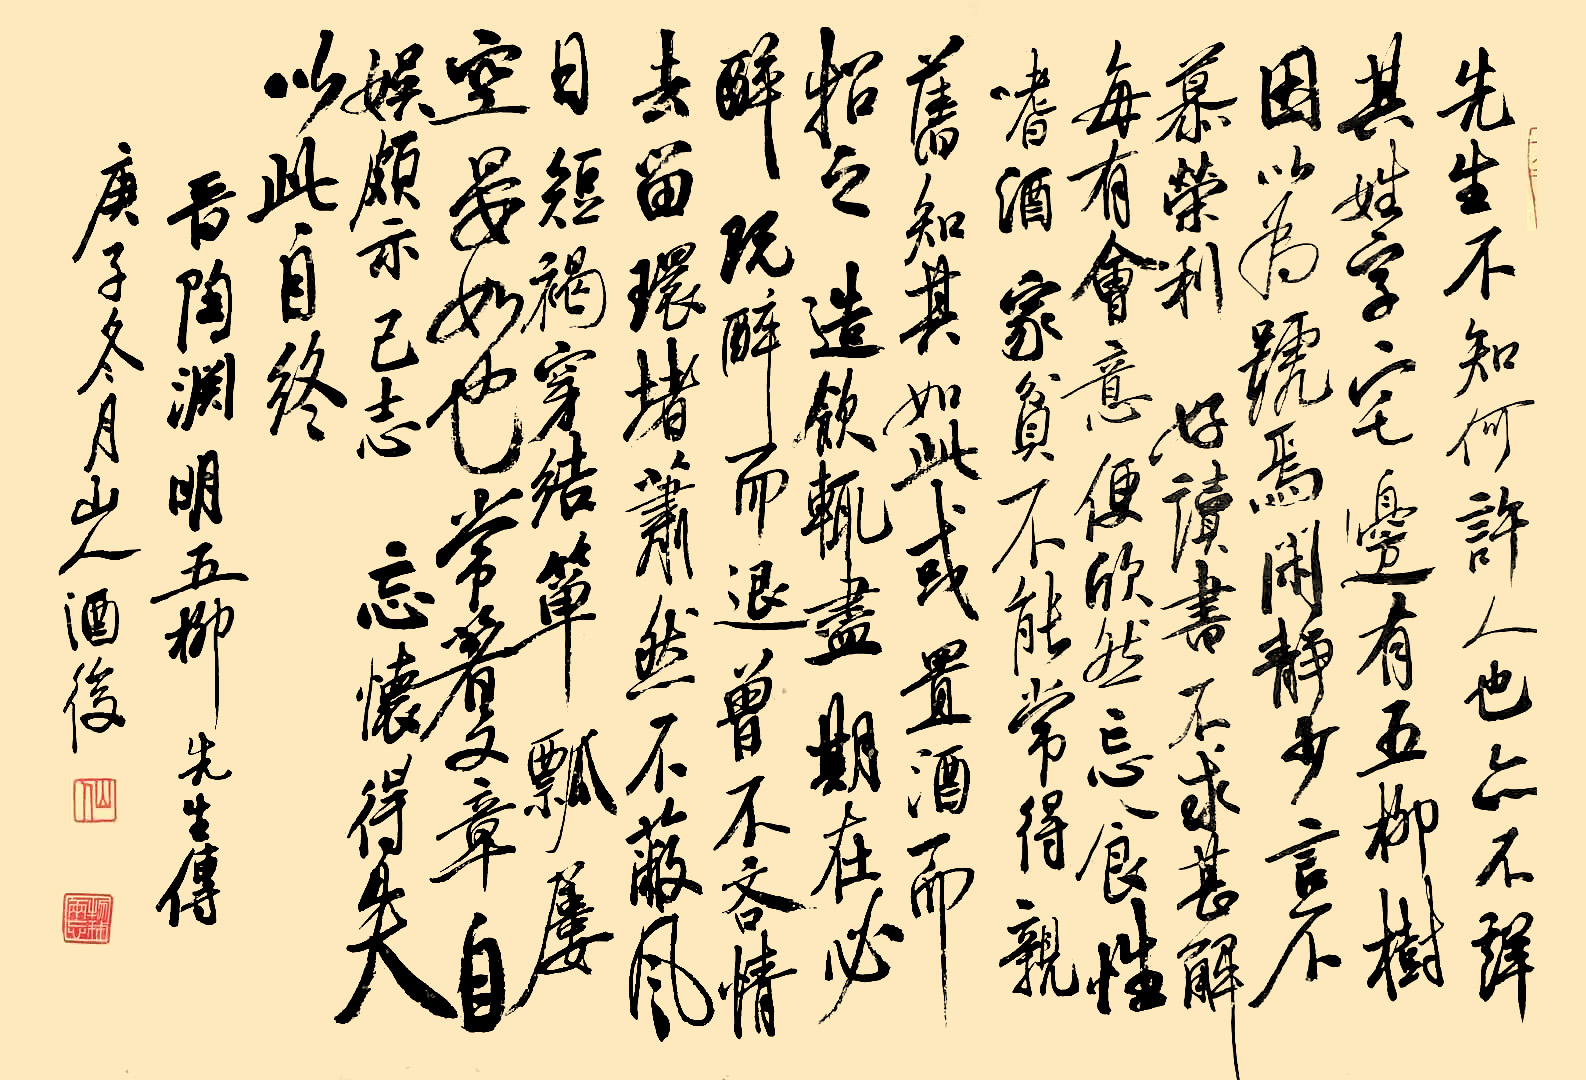 先生不知何許人也亦不詳
其姓字宅邊有五柳樹
因以為號焉閑靜少言不
慕榮利好讀書不求甚解
每有會意便欣然忘食性
嗜酒家貧不能常得親
舊知其如此或置酒而
招之造飲輒盡期在必
醉既醉而退曾不吝情
去留環堵蕭然不蔽風
日短褐穿結簞瓢屢
空晏如也常著文章自
娛頗示己志忘懷得失
以此自終
晋陶淵明五柳先生傳
庚子冬月山人酒後